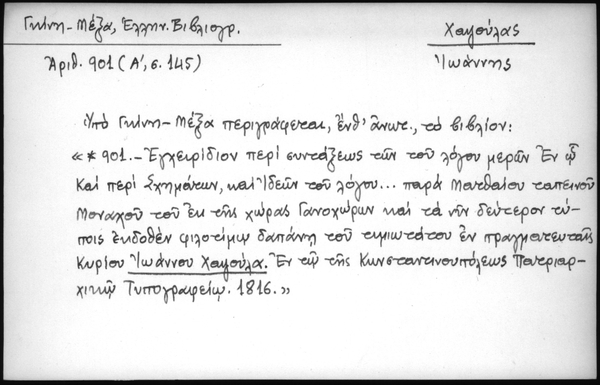 Γκίνη-Μέξα, Ἑλλην. Βιβλιογρ.
Χαψούλας
Ἀριθ. 901 (Α΄, σ. 145)
Ἰωάννης
Ὑπὸ Γκίνη-Μέξα περιγράφεται, ἔνθ' ἄνωτ., τὸ βιβλίον:
«*901.- Ἐγχειρίδιον περὶ συντάξεως τῶν τοῦ λόγου μερῶν Ἐν ᾧ
Καὶ περὶ Σχημάτων, καὶ Ἰδεῶν τοῦ λόγου... παρὰ Ματθαίου ταπεινοῦ
Μοναχοῦ τοῦ ἐκ τῆς χώρας Γανοχώρων καὶ τὰ νῦν δεύτερον τύ-
ποις ἐκδοθὲν φιλοτίμῳ δαπάνῃ τοῦ τιμιωτάτου ἐν πραγματευταῖς
Κυρίου Ἰωάννου Χαψούλα. Ἐν τῷ τῆς Κωνσταντινουπόλεως Πατριαρ-
χικῷ Τυπογραφείῳ. 1816.»